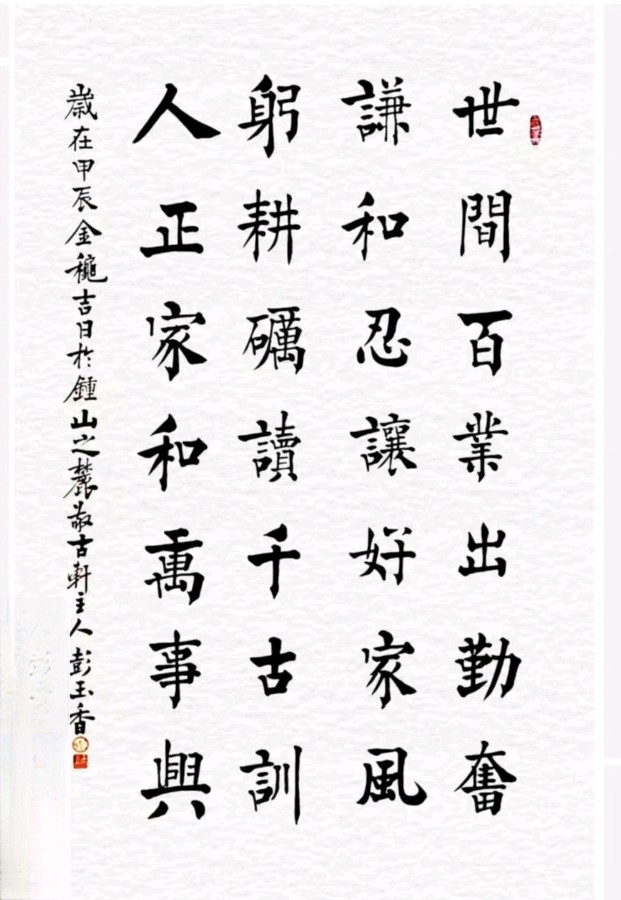 世間百業出勤奮
謙和忍讓好家風
躬耕礪讀千古訓
人正家和萬事興
歲在甲辰金龝吉日於鍾山之麓敬古軒主人彭玉香